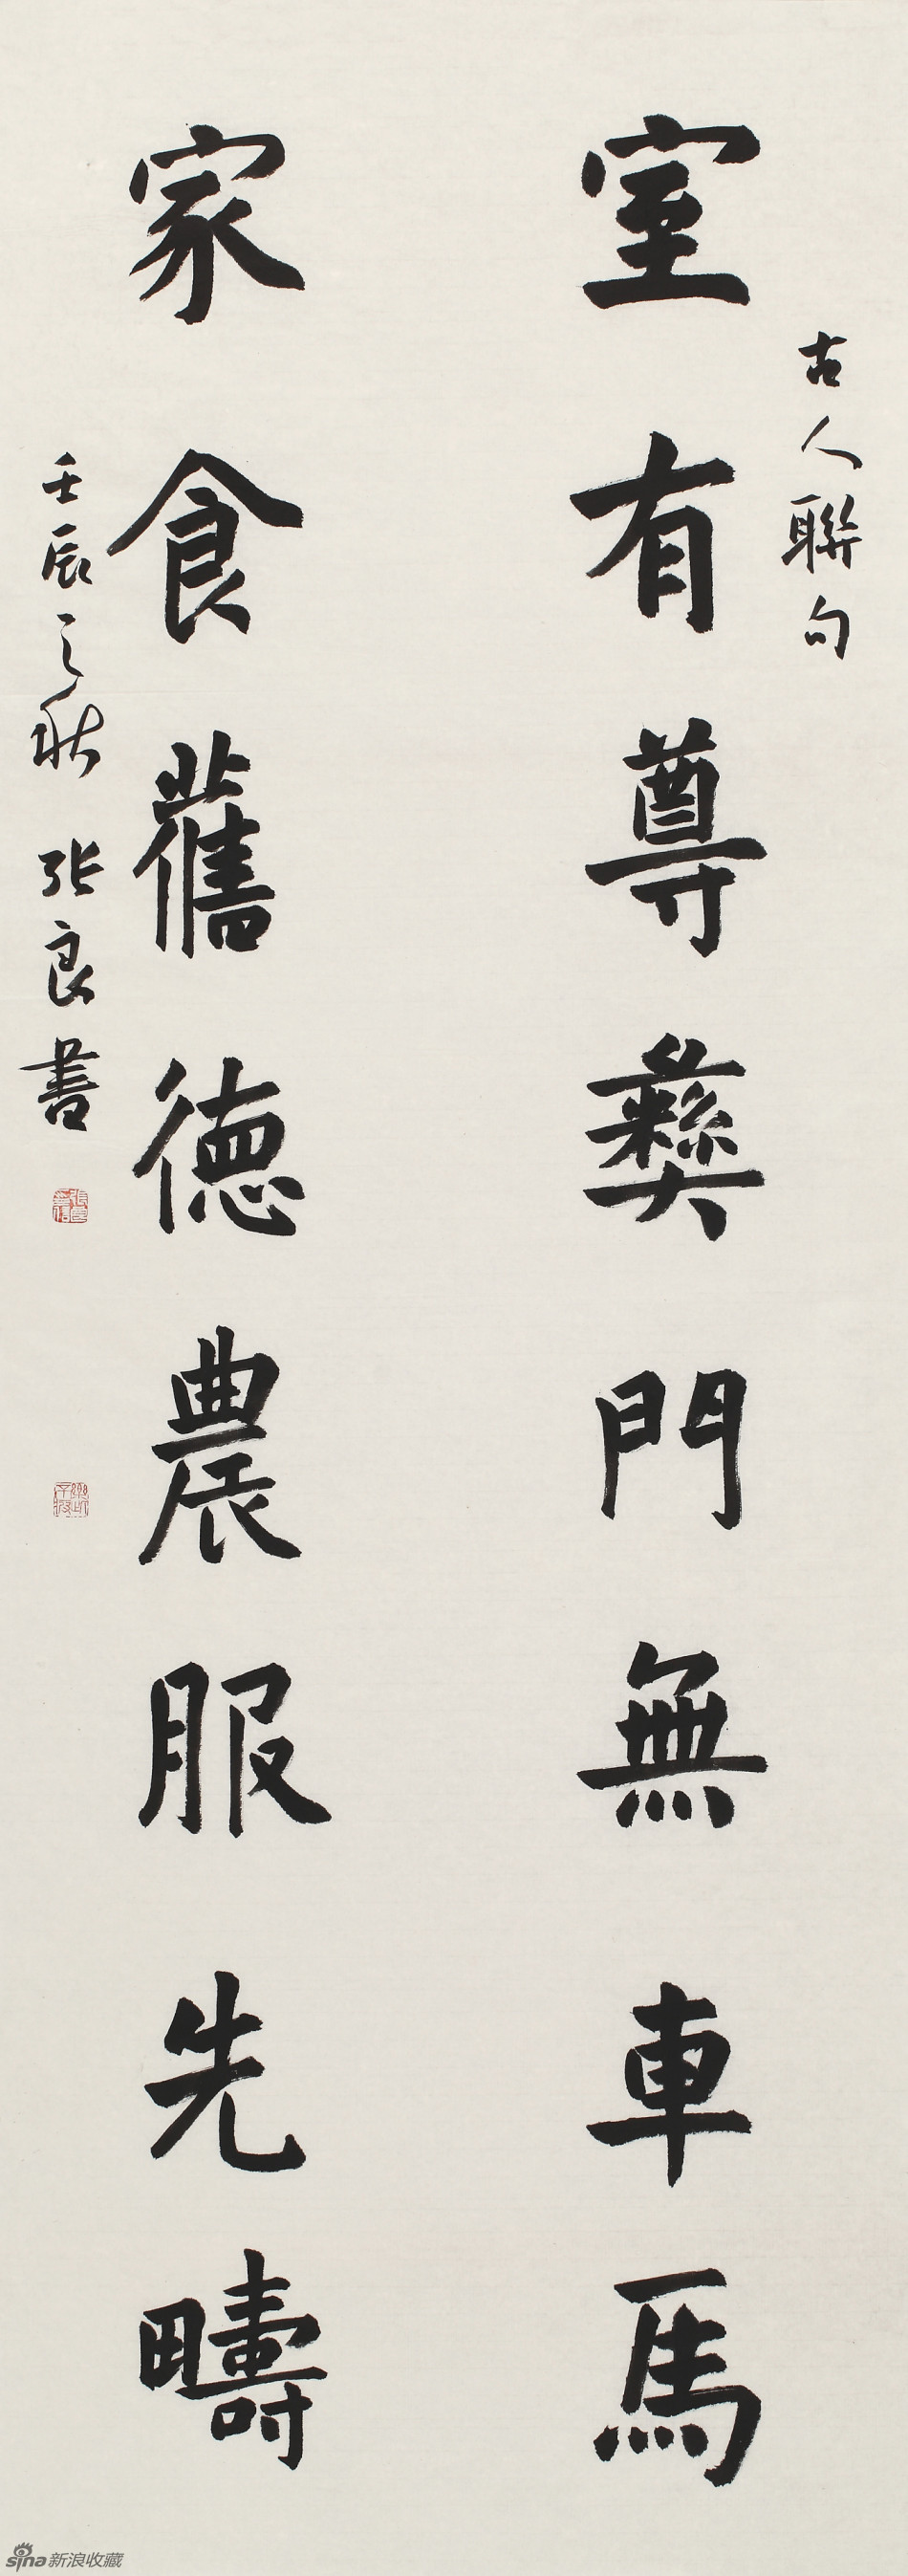 古人聯句
室有尊彝門無車馬
家食舊德農服先疇
壬辰之秋 張良書
sina新浪收藏